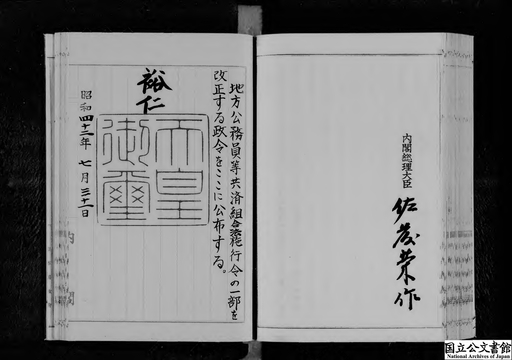 地方公務員等共済組合法施行令の一部を
改正する政令をここに公布する。
裕仁
天皇
御璽
昭和四十二年七月三十一日
内閣総理大臣
佐藤榮作
国立公文書館
National Archives of Japan